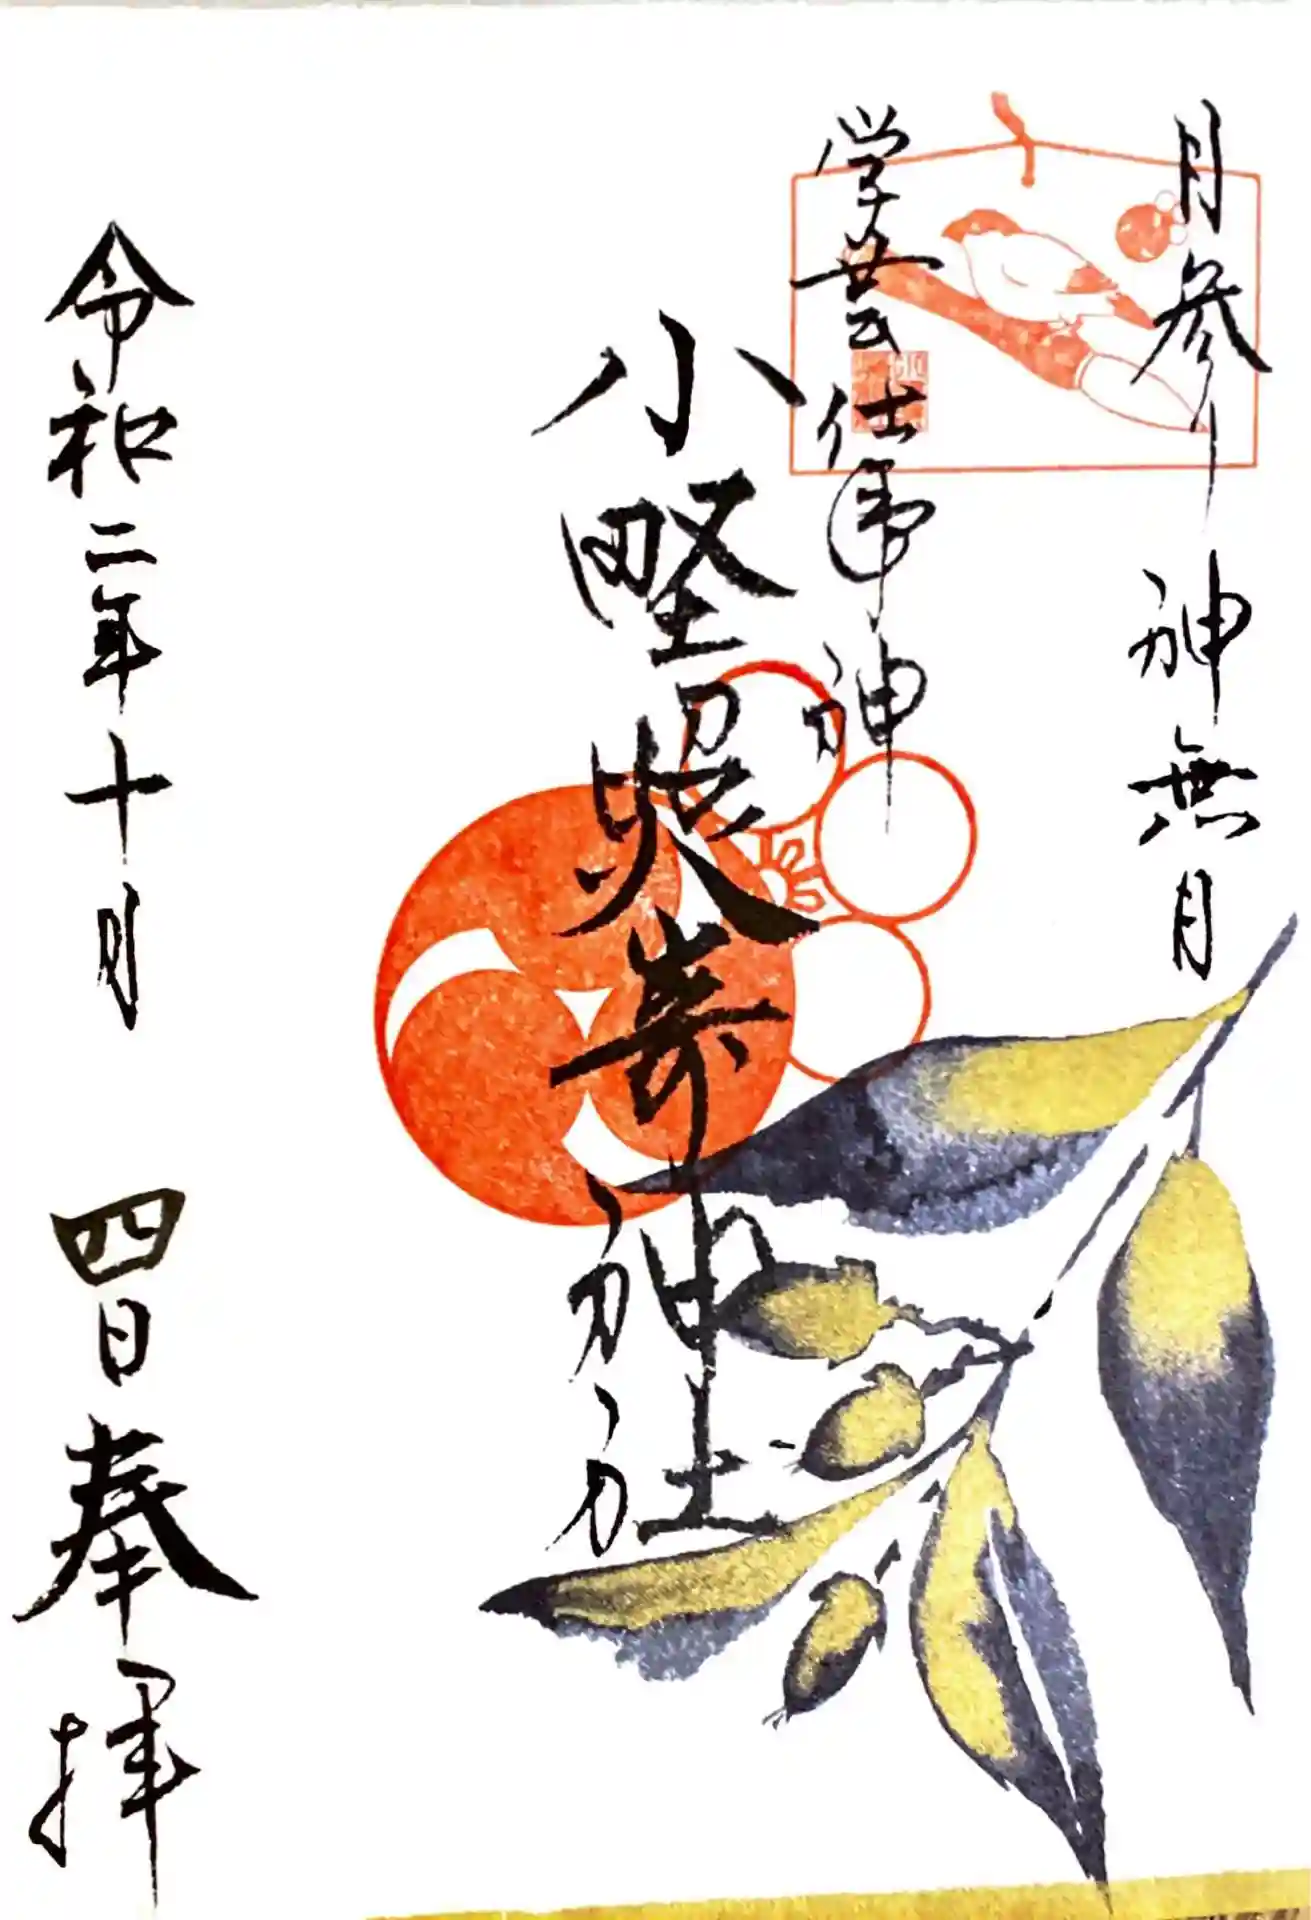 月参り 神無月
学芸 仕事神
小野照崎神社
令和二年十月 四日 奉拝